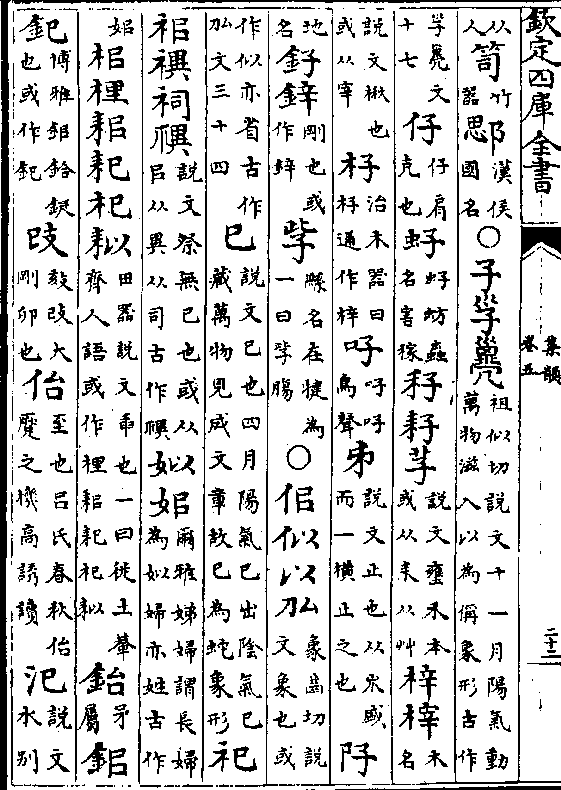 欽定四庫全書
集韻
卷五
二十二
从人笥竹器𨛭漢侯國名○子㜽𢀇祖似切說文十一月陽氣動萬物滋入以為偁象形古作
㜽𢀇文十七仔仔肩克也虸虸蚄蟲名害稼秄耔芓說文壅禾本或从耒从艸梓榟木名
說文楸也或从宰杍治木器曰杍通作梓吇吇吇鳥聲𠂔說文止也从𣎵盛而一橫止之也阷
地名釨鋅剛也或作鋅㧗縣名在犍為一曰㧗腸○佀似㠯厶象齒切說文象也或
作似亦省古作厶文三十四巳說文已也四月陽氣已出陰氣已藏萬物見成文章故巳為蛇象形祀
䄫禩祠禩說文祭無已也或从異从司古作禩姒㚶爾雅娣婦謂長婦為姒婦亦姓古作
㚶梠梩耜耛杞田器說文耒也一曰徙土輂齊人語或作梩耜耛杞鈶矛屬鋁
鈀博雅鉊鈶鋘也或作鈀改㱾改大剛卯也佁至也呂氏春秋佁蹷之機高誘讀汜說文水別